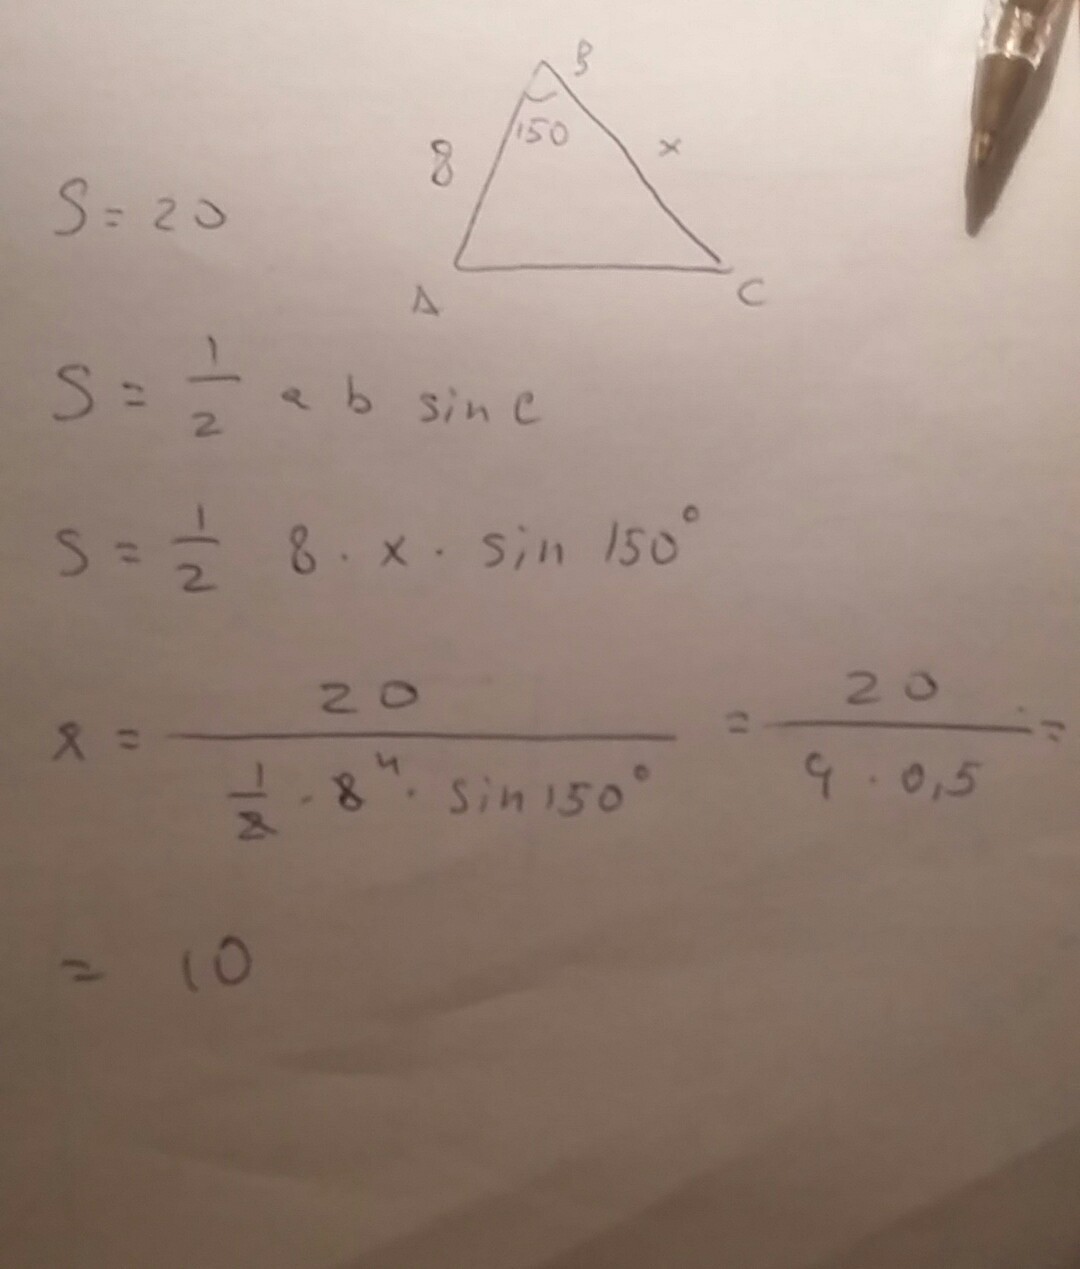 B
8 150 x
S = 20
A C
S = 1/2 a b sin C
S = 1/2 8 · x · sin 150°
x = 20 / (1/2 · 8⁴ · sin 150°) = 20 / (4 · 0,5) =
= 10